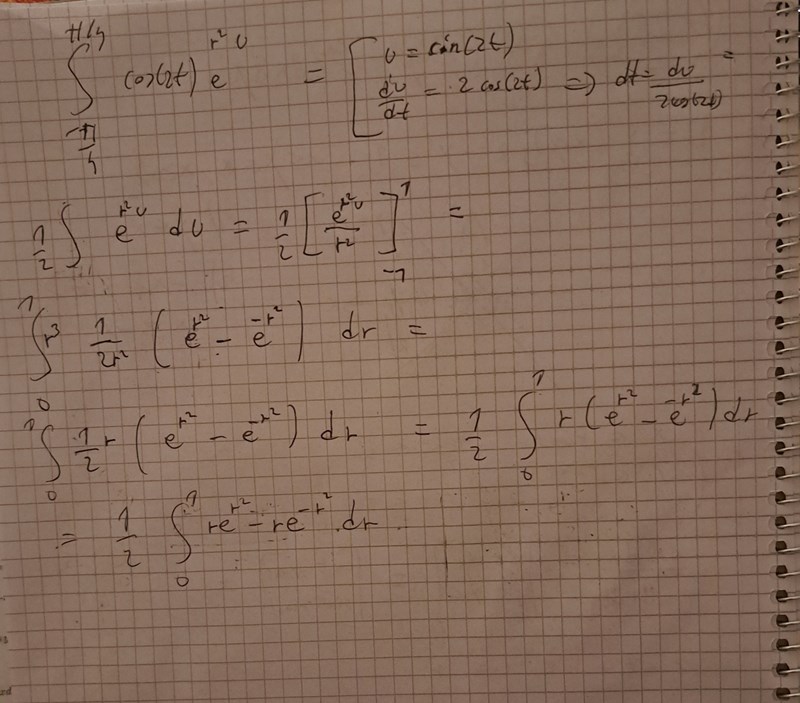 ∫_{-π/4}^{π/4} cos(2t) e^{r²u} = [ u = sin(2t)
du/dt = 2 cos(2t) ⇒ dt = du/2cos(2t) =
1/2 ∫ e^{r²u} du = 1/2 [ e^{r²u}/r² ]_{-1}^{1} =
∫_0^1 r³ 1/2r² ( e^{r²} - e^{-r²} ) dr =
∫_0^1 1/2 r ( e^{r²} - e^{-r²} ) dr = 1/2 ∫_0^1 r ( e^{r²} - e^{-r²} ) dr
= 1/2 ∫_0^1 re^{r²} - re^{-r²} dr